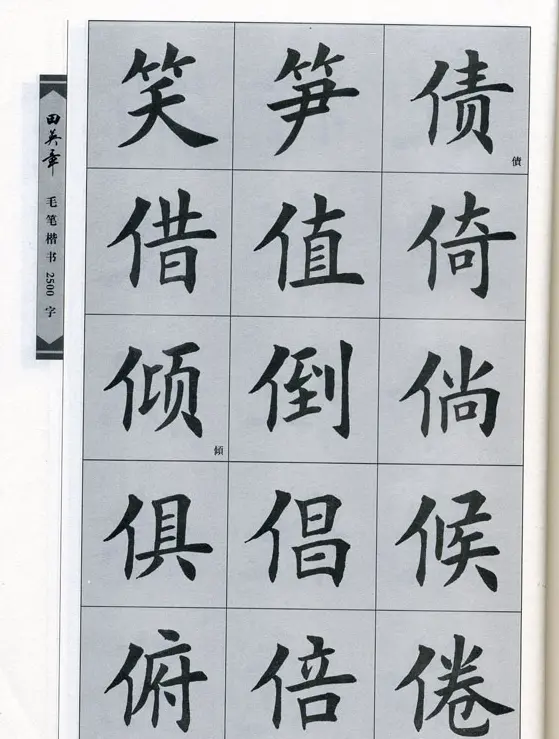 田英章 毛笔楷书 2500 字
笑 笋 债 債
借 值 倚
倾 傾 倒 倘
俱 倡 候
俯 倍 倦